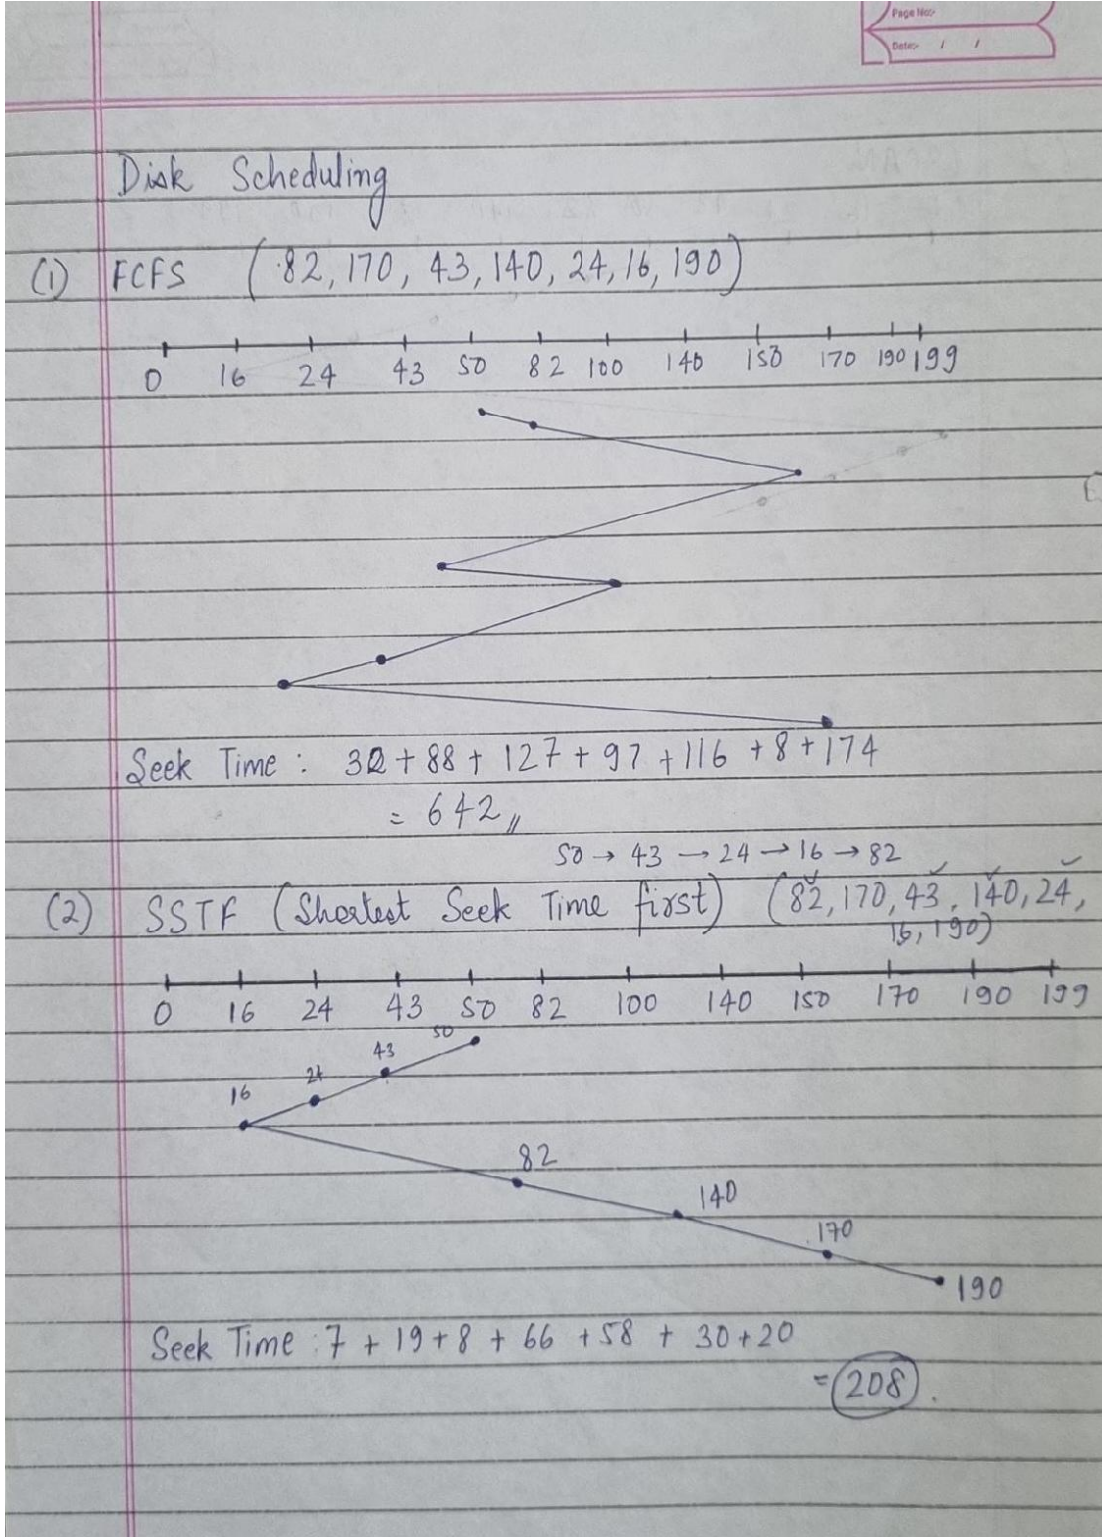 Page No:-
Date:- / /
Disk Scheduling
(1) FCFS (82, 170, 43, 140, 24, 16, 190)
0 16 24 43 50 82 100 140 150 170 190 199
Seek Time : 32 + 88 + 127 + 97 + 116 + 8 + 174
= 642 //
50 → 43 → 24 → 16 → 82
(2) SSTF (Shortest Seek Time first) (82, 170, 43, 140, 24,
16, 190)
0 16 24 43 50 82 100 140 150 170 190 199
50
43
24
16
82
140
170
190
Seek Time : 7 + 19 + 8 + 66 + 58 + 30 + 20
= 208.